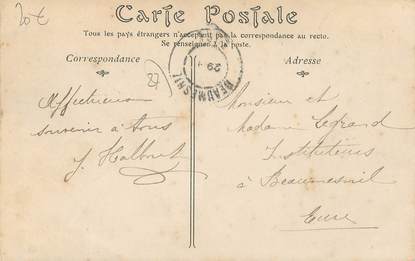 20€
Carte Postale
Tous les pays étrangers n'acceptent pas la correspondance au recto.
Se renseigner à la poste.
Correspondance
Adresse
27
BEAUMESNIL
29
Affectueux
souvenir à tous
Monsieur et
Madame Legrand
Instituteurs
à Beaumesnil
Eure